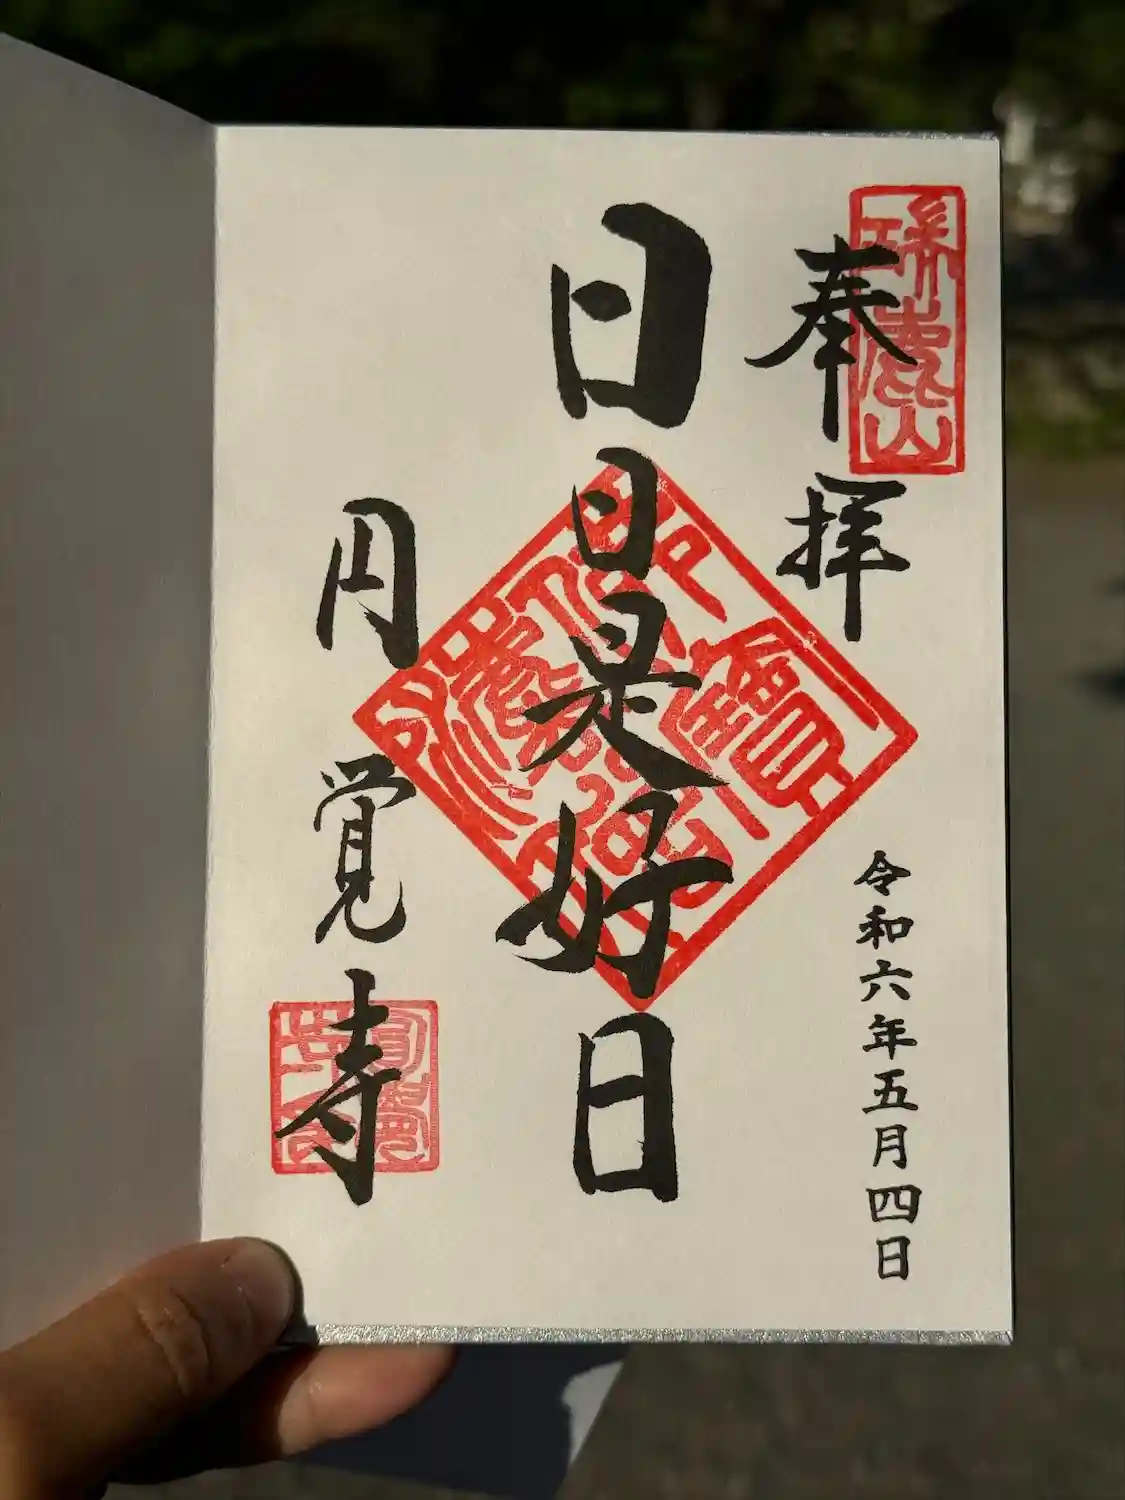 瑞鹿山
奉拝
令和六年五月四日
日日是好日
円覚寺